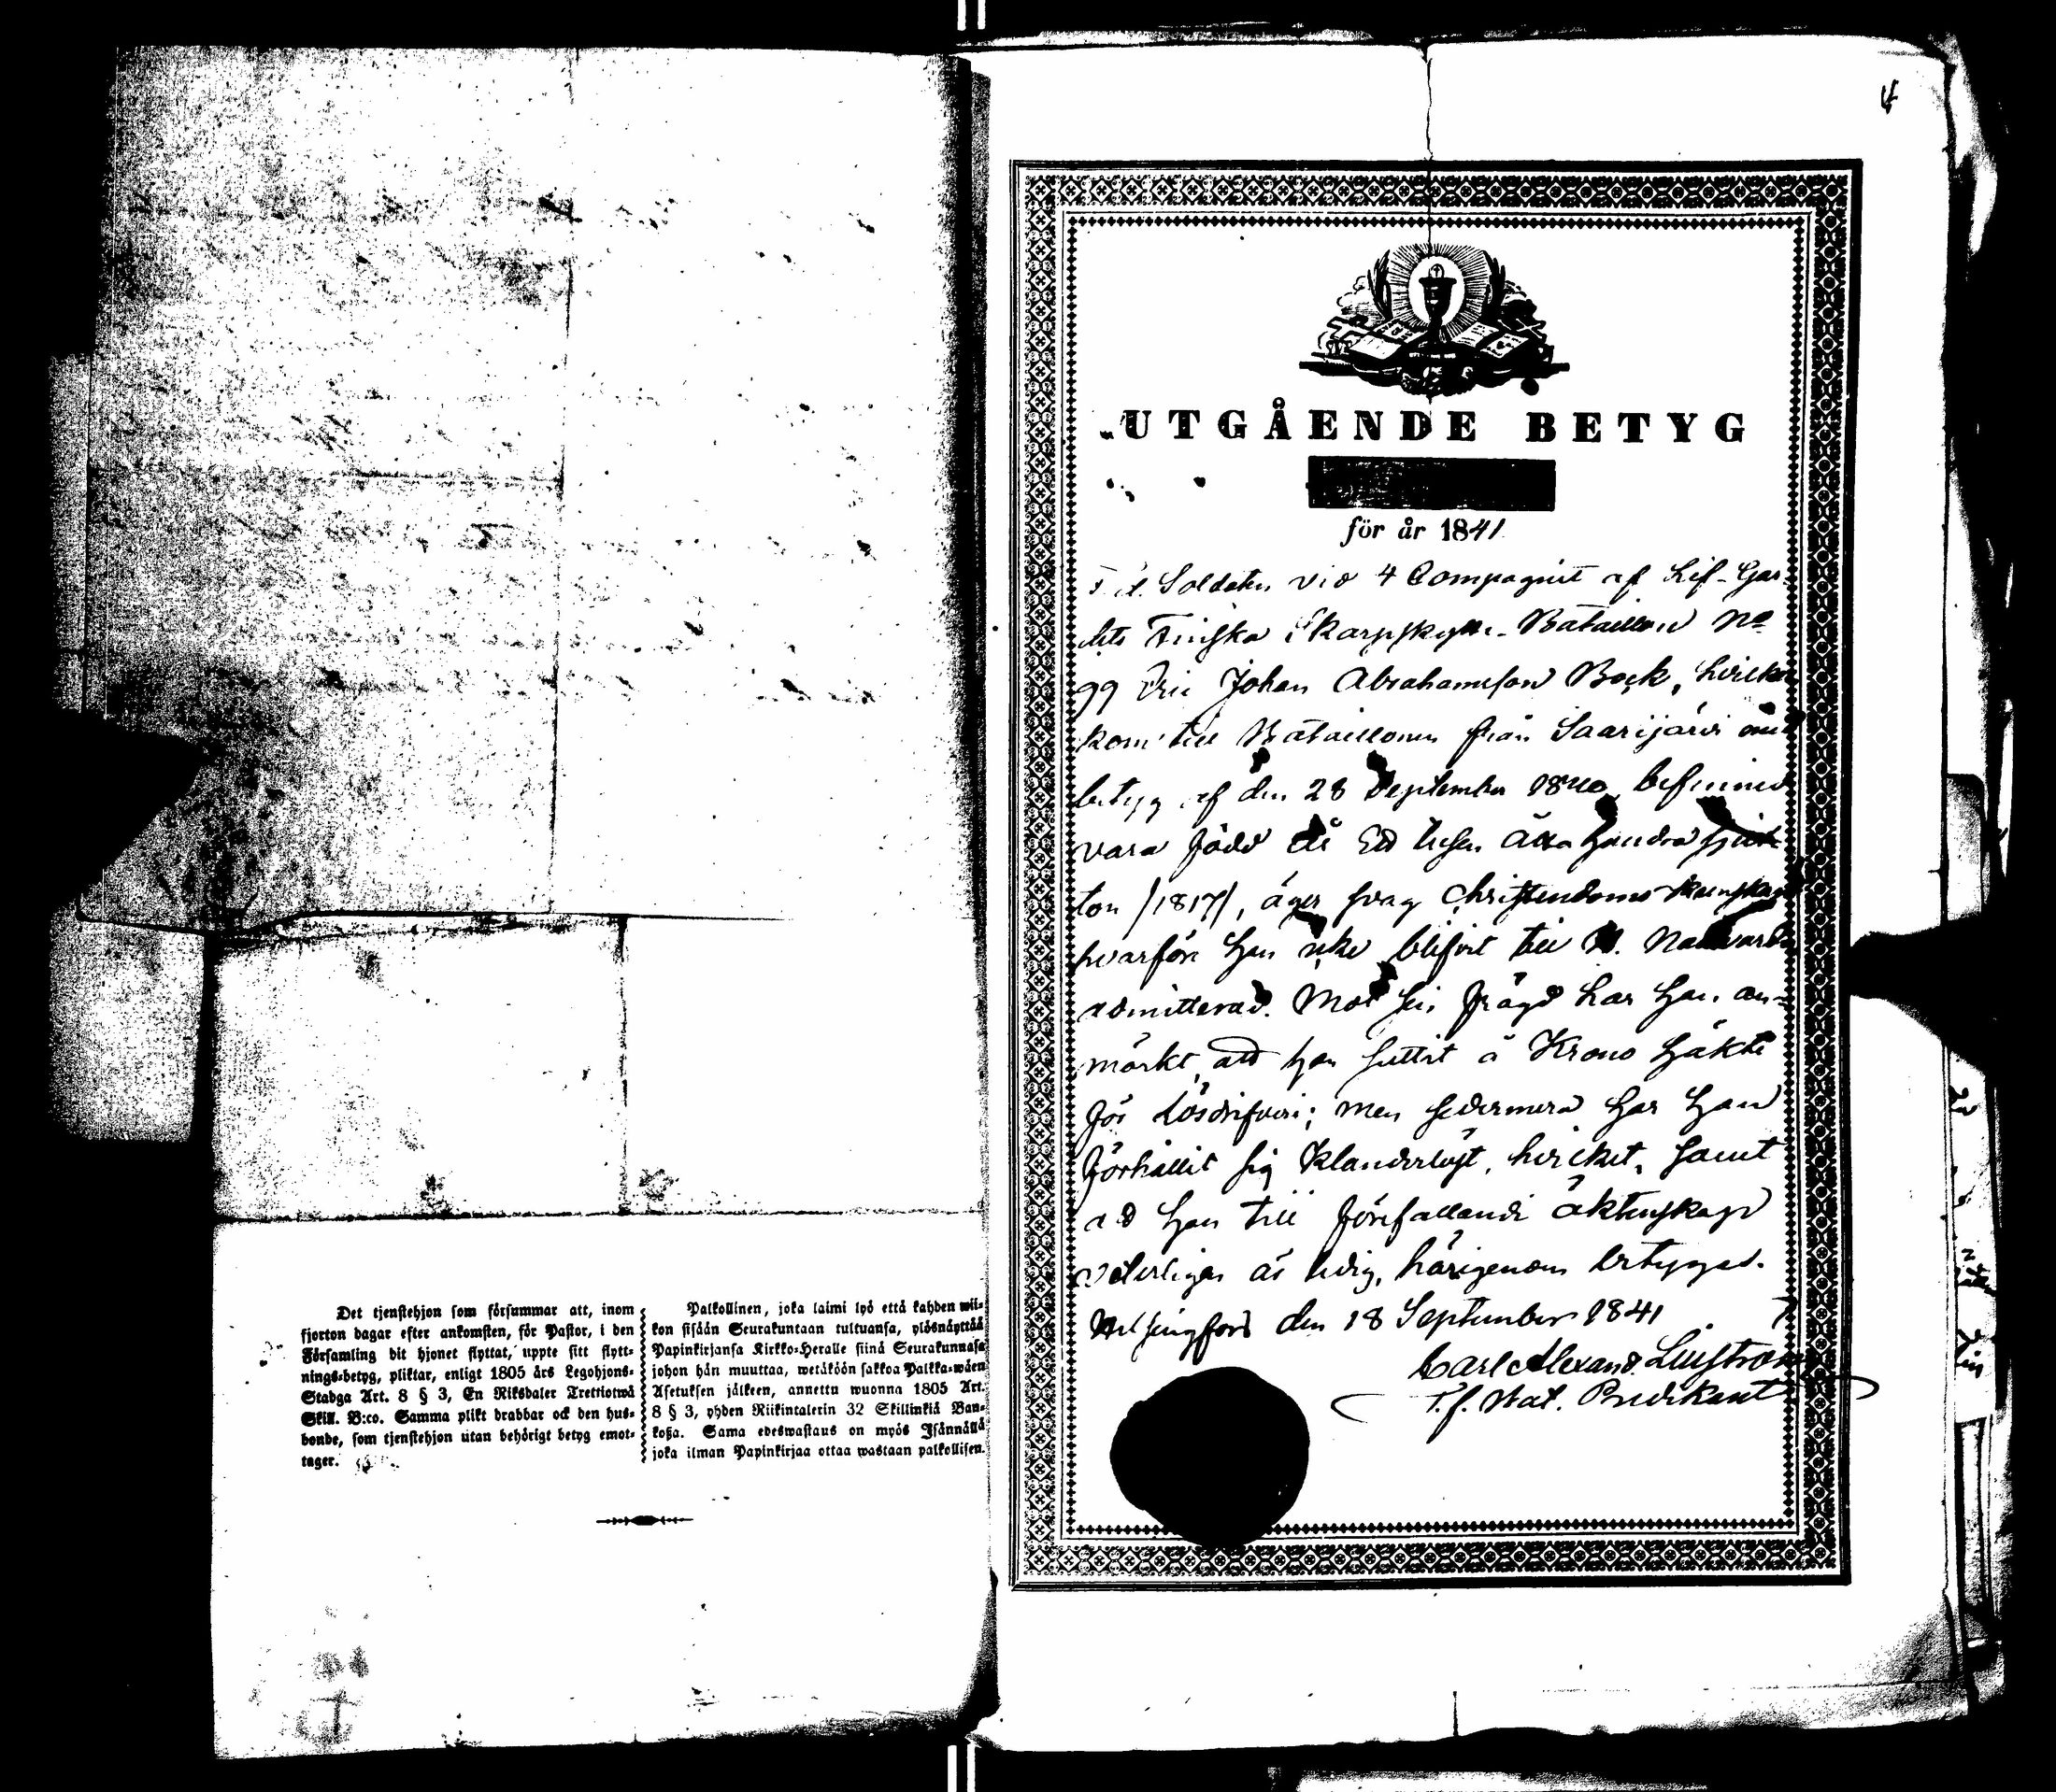 Det tjenstehjon som försummar att, inom
fjorton dagar efter ankomsten, för Pastor, i den
Församling dit hjonet flyttat, uppte sitt flytt-
nings-betyg, pliktar, enligt 1805 års Legohjons-
Stadga Art. 8 § 3, En Riksdaler Trettiotwå
Skill. B:co. Samma plikt drabbar ock den hus-
bonde, som tjenstehjon utan behörigt betyg emot-
tager.
Palkollinen, joka laimi lyö että kahden wii-
kon sisään Seurakuntaan tultuansa, ylösnäyttää
Papinkirjansa Kirkko-Heralle siinä Seurakunnasa
johon hän muuttaa, wetäköön sakkoa Palkka-wäen
Asetuksen jälkeen, annettu wuonna 1805 Art.
8 § 3, yhden Riikintalerin 32 Skillinkiä Ban-
koßa. Sama edeswastaus on myös Isännällä
joka ilman Papinkirjaa ottaa wastaan palkollisen.
UTGÅENDE BETYG
för år 1841
Soldaten vid 4 Compagniet af Lif-Gar-
dets Finska Skarpskytte-Bataillon No
99 Eric Johan Abrahamsson Bock, hvilken
kom till Bataillonen från Saarijärvi med
betyg af den 28 September 1840, befinnes
vara född år Ett tusen åtta hundra sjut-
ton /1817/, äger svag Christendoms kunskap
hvarföre han icke blifvit till H. Nattvard
admitterad. Mot sin frägd har han an-
märkt, att han suttit å Krono häkte
för lösdrifveri; men sedermera har han
förhållit sig klanderlöst, hvilket, samt
att han till förefallande äktenskap
veterligen är ledig, härigenom betygas.
Helsingfors den 18 September 1841
Carl Alexand. Liljström
T. f. Bat. Predikant